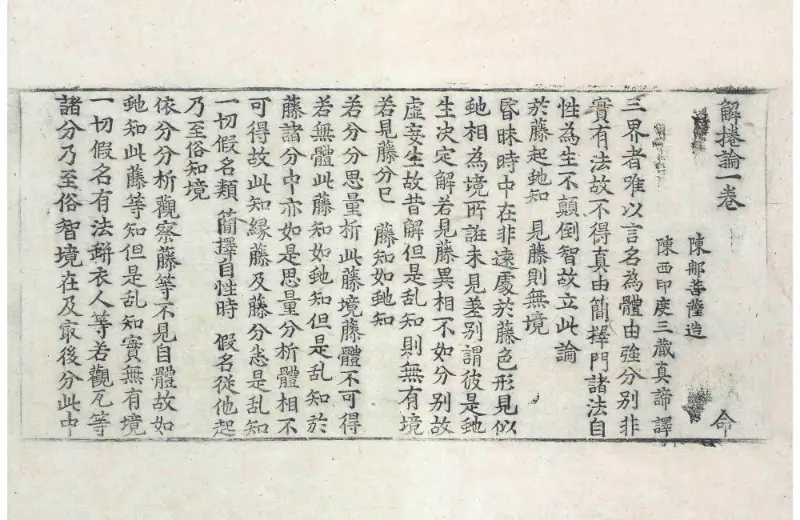 解捲論一卷 命
陳那菩薩造
陳西印度三藏真諦譯
三界者唯以言名為體由強分別非
實有法故不得真由簡擇門諸法自
性為生不顛倒智故立此論
於藤起虵知 見藤則無境
昏昧時中在非遠處於藤色形見似
虵相為境所誑未見差別謂彼是虵
生决定解若見藤異相不如分別故
虛妄生故昔解但是乱知則無有境
若見藤分已 藤知如虵知
若分分思量析此藤境藤體不可得
若無體此藤知如虵知但是乱知於
藤諸分中亦如是思量分析體相不
可得故此知緣藤及藤分悉是乱知
一切假名類 簡擇自性時 假名從他起
乃至俗知境
依分分析觀察藤等不見自體故如
虵知此藤等知但是乱知實無有境
一切假名有法缾衣人等若觀瓦等
諸分乃至俗智境在及㝡後分此中